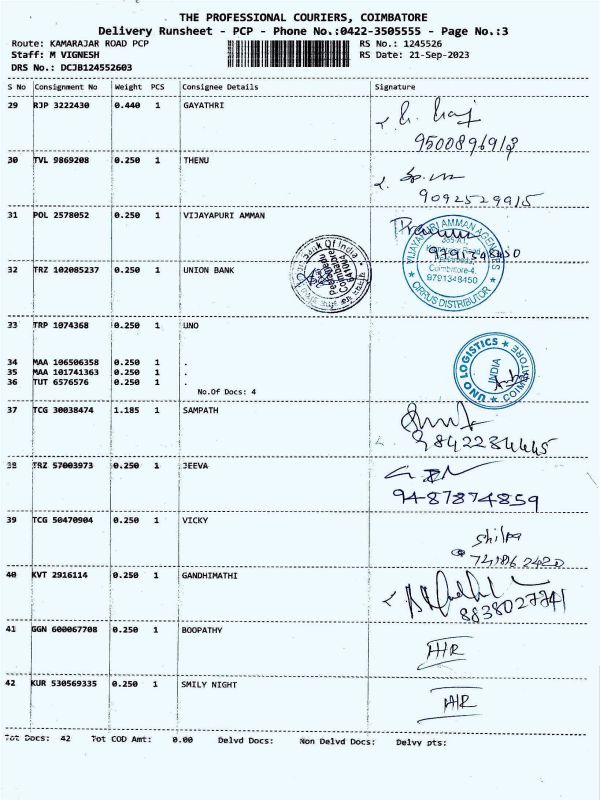 THE PROFESSIONAL COURIERS, COIMBATORE
Delivery Runsheet - PCP - Phone No.:0422-3505555 - Page No.:3
Route: KAMARAJAR ROAD PCP RS No.: 1245526
Staff: M VIGNESH RS Date: 21-Sep-2023
DRS No.: DCJB124552603
S No Consignment No Weight PCS Consignee Details Signature
29 RJP 3222430 0.440 1 GAYATHRI
9500896913
30 TVL 9869208 0.250 1 THENU
9092529915
31 POL 2578052 0.250 1 VIJAYAPURI AMMAN
9791348450
VIJAYAPURI AMMAN AGENCIES
Coimbatore-4.
9791348450
★ CIRRUS DISTRIBUTOR ★
32 TRZ 102085237 0.250 1 UNION BANK
Bank Of India
33 TRP 1074368 0.250 1 UNO
UNO LOGISTICS ★ COIMBATORE ★
INDIA
34 MAA 106506358 0.250 1 .
35 MAA 101741363 0.250 1 .
36 TUT 6576576 0.250 1 .
No.Of Docs: 4
37 TCG 30038474 1.185 1 SAMPATH
9842284445
38 TRZ 57003973 0.250 1 JEEVA
9487874859
39 TCG 50470904 0.250 1 VICKY
Shilpa
40 KVT 2916114 0.250 1 GANDHIMATHI
8838027741
41 GGN 600067708 0.250 1 BOOPATHY
42 KUR 530569335 0.250 1 SMILY NIGHT
Tot Docs: 42 Tot COD Amt: 0.00 Delvd Docs: Non Delvd Docs: Delvy pts: